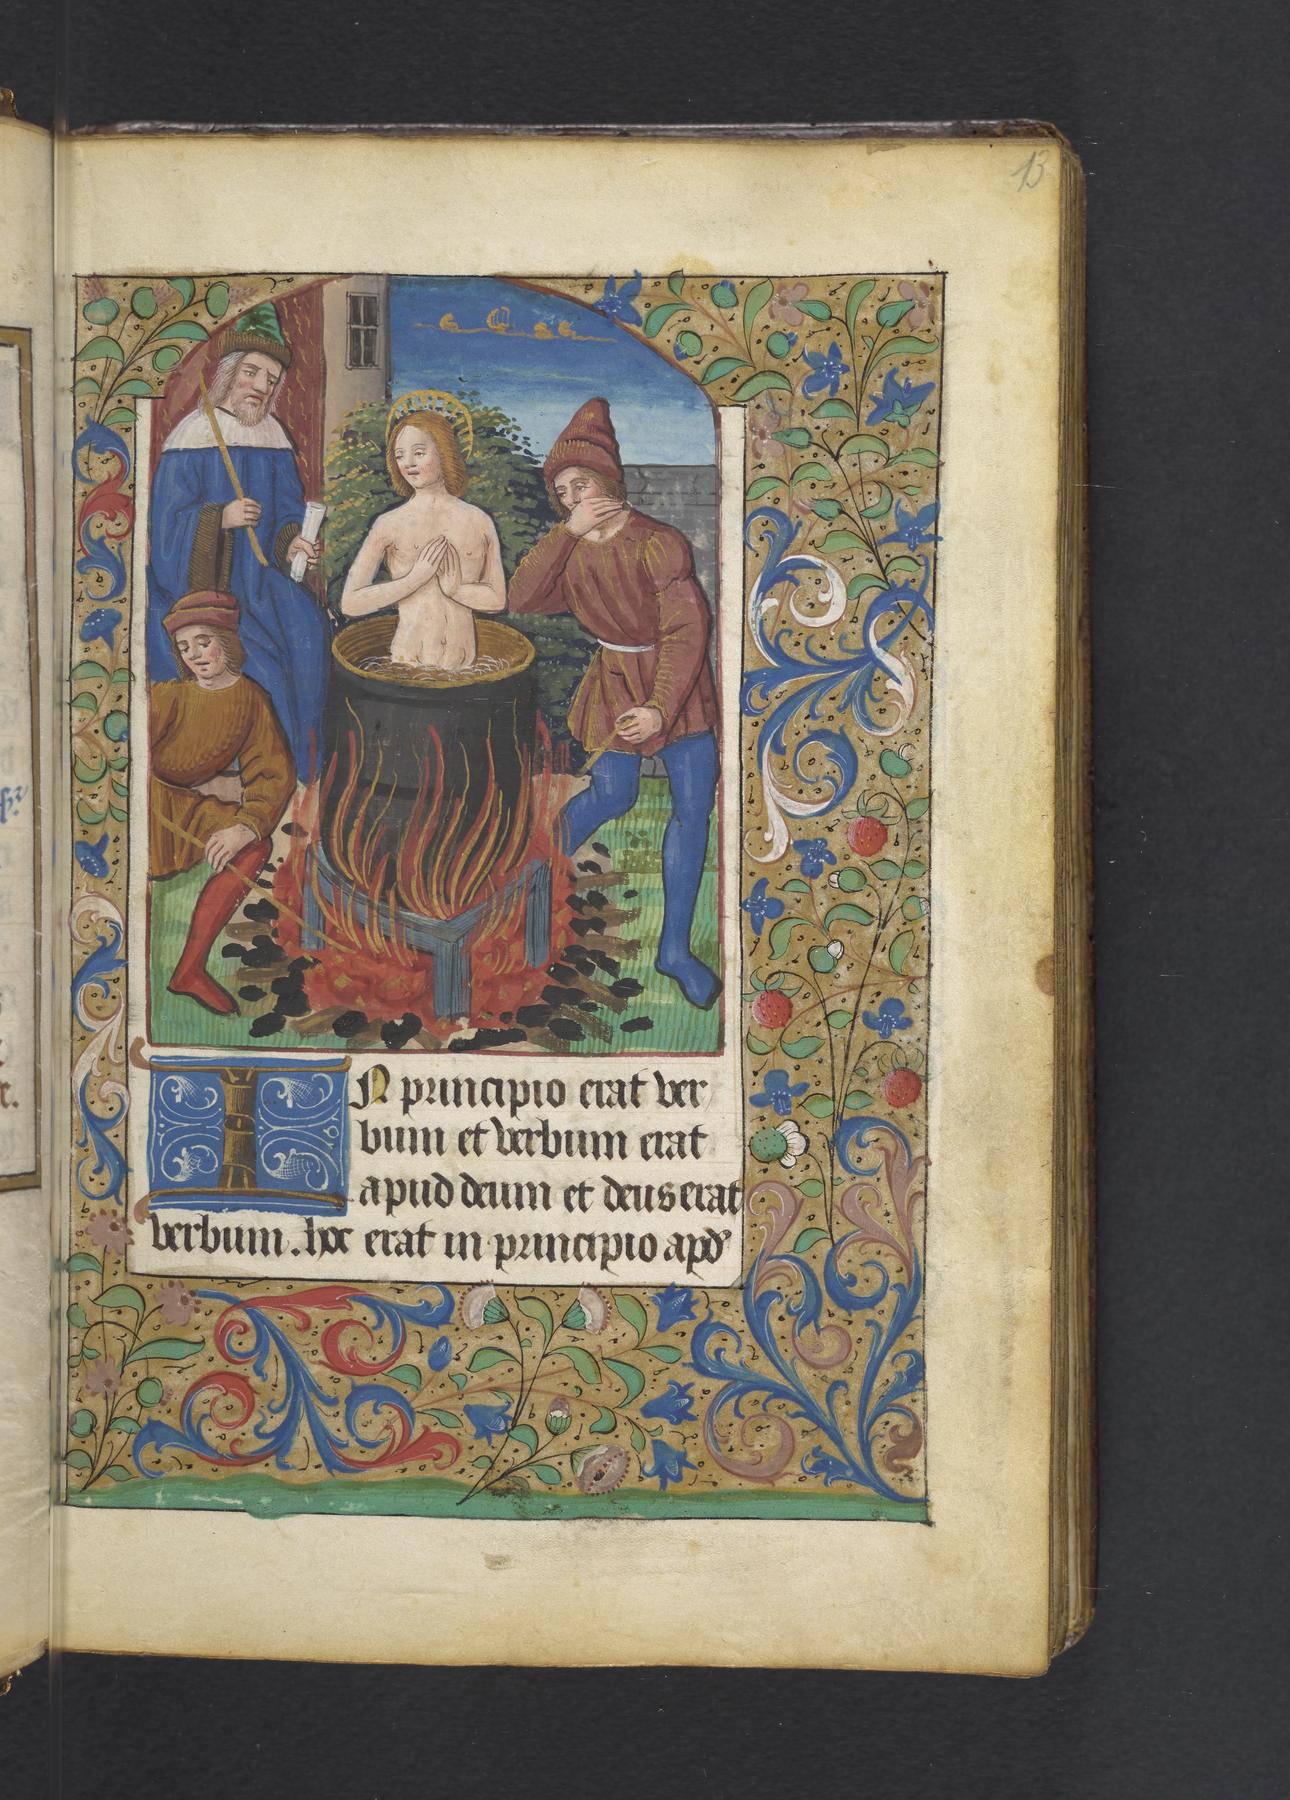 13
IN principio erat ver
bum et verbum erat
apud deum et deus erat
verbum. hoc erat in principio apd'